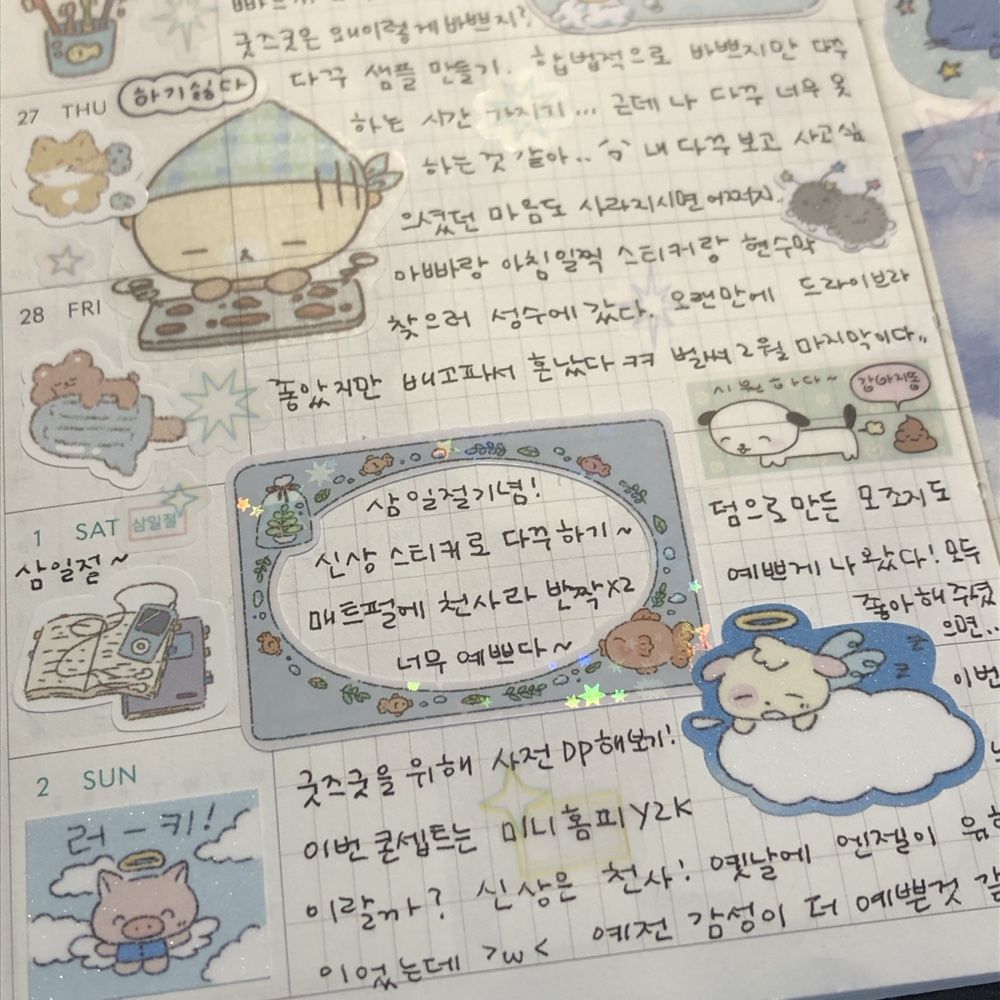 굿즈굿은 왜이렇게 바쁘지?
27 THU
하기싫다
다꾸 샘플 만들기. 합법적으로 바쁘지만 다꾸
하는 시간 가지기... 근데 나 다꾸 너무 못
하는 것 같아.. 내 다꾸 보고 사고싶
으셨던 마음도 사라지시면 어쩌지.
28 FRI
아빠랑 아침일찍 스티커랑 현수막
찾으러 성수에 갔다. 오랜만에 드라이브라
좋았지만 배고파서 혼났다 ㅋㅋ 벌써 2월 마지막이다..
시원하다~
강아지똥
1 SAT 삼일절
삼일절~
삼일절기념!
신상 스티커로 다꾸하기~
매트펄에 천사라 반짝X2
너무 예쁘다~
덤으로 만든 모조지도
예쁘게 나왔다! 모두
좋아해주셨
으면..
이번
z z z
2 SUN
러-키!
굿즈굿을 위해 사전 DP해보기!
이번 콘셉트는 미니홈피 Y2K
이랄까? 신상은 천사! 옛날에 엔젤이 유
이었는데 >w< 예전 감성이 더 예쁜것 같